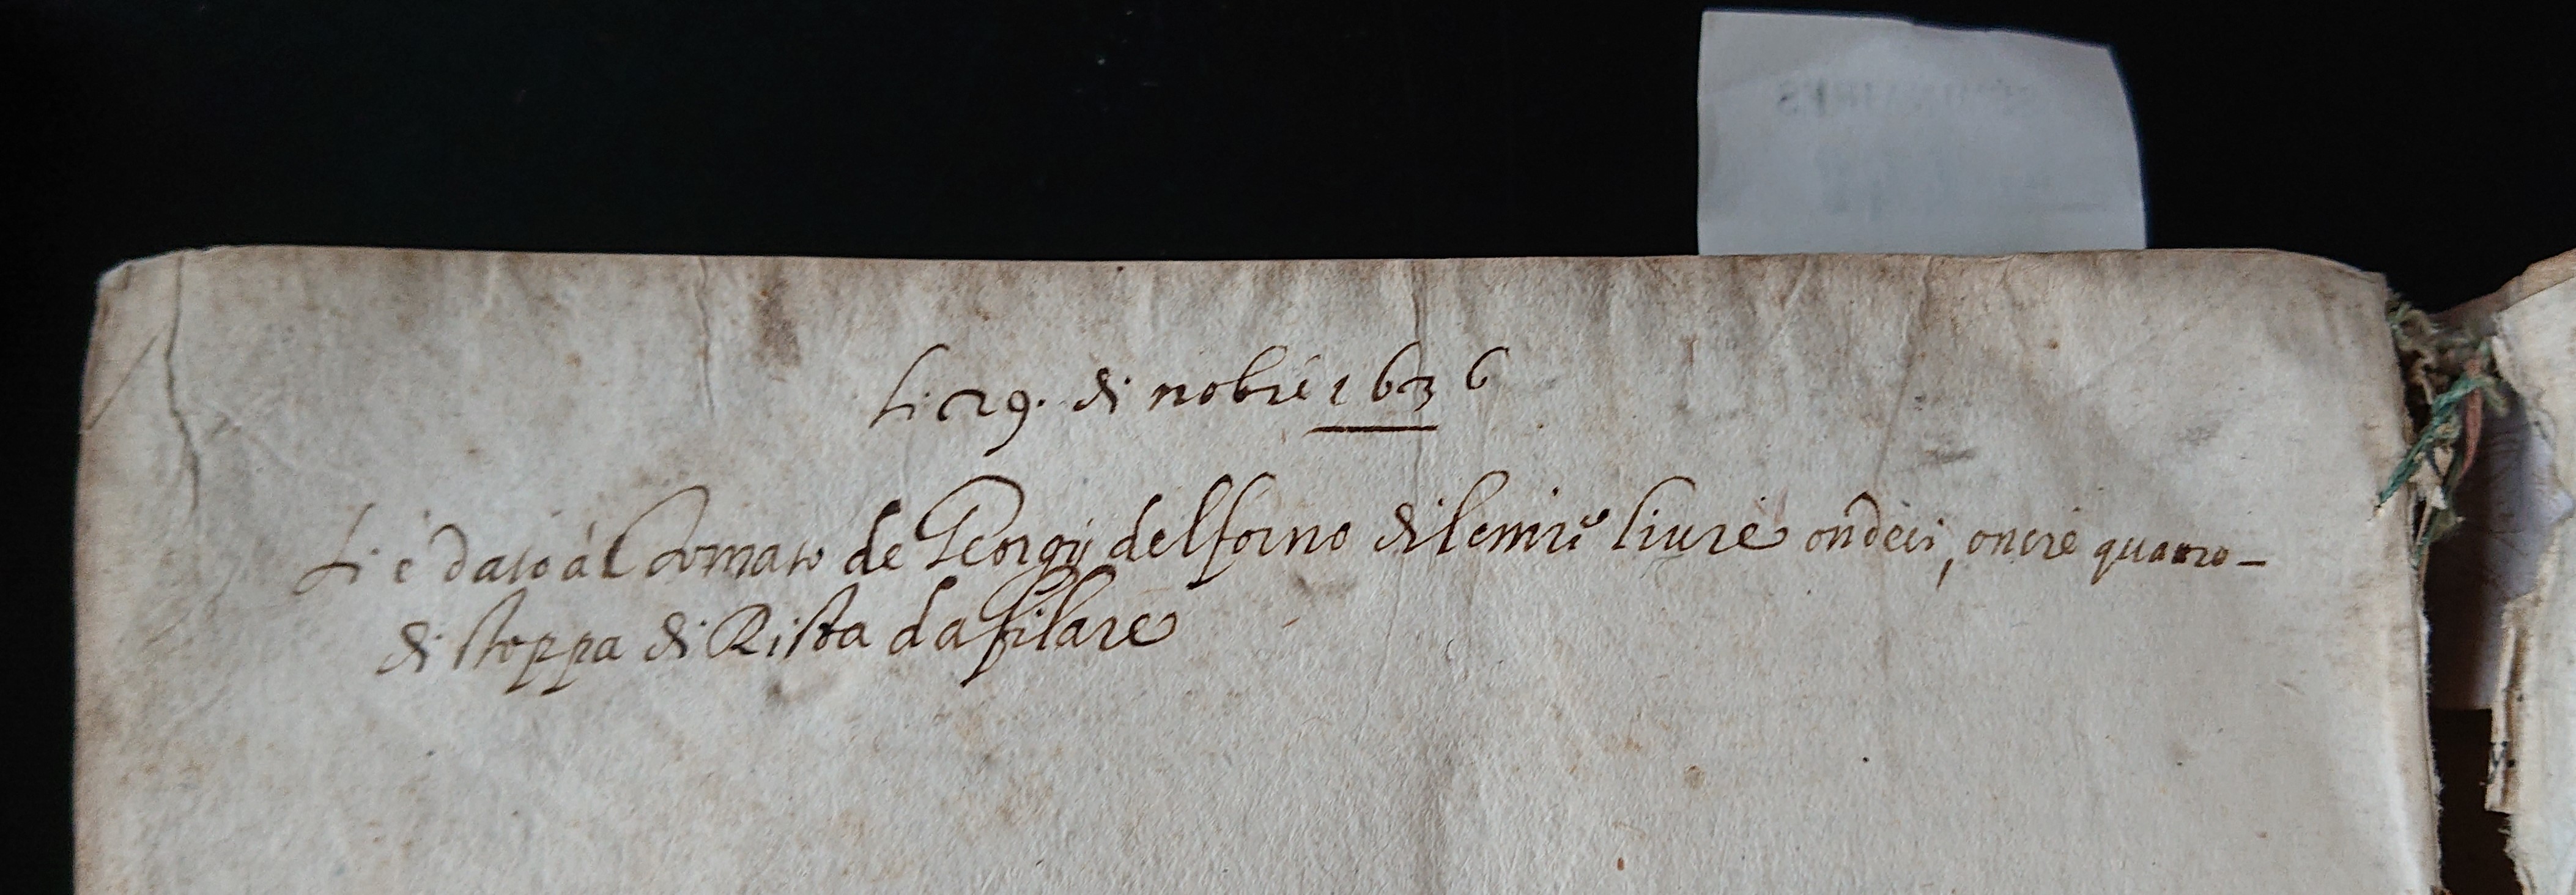 Li 29. di nobre 1636
Si è dato à Tomaso de Georgij del forno di lemire liure ondeci, oncie quatro -
di stoppa di Rista da filare